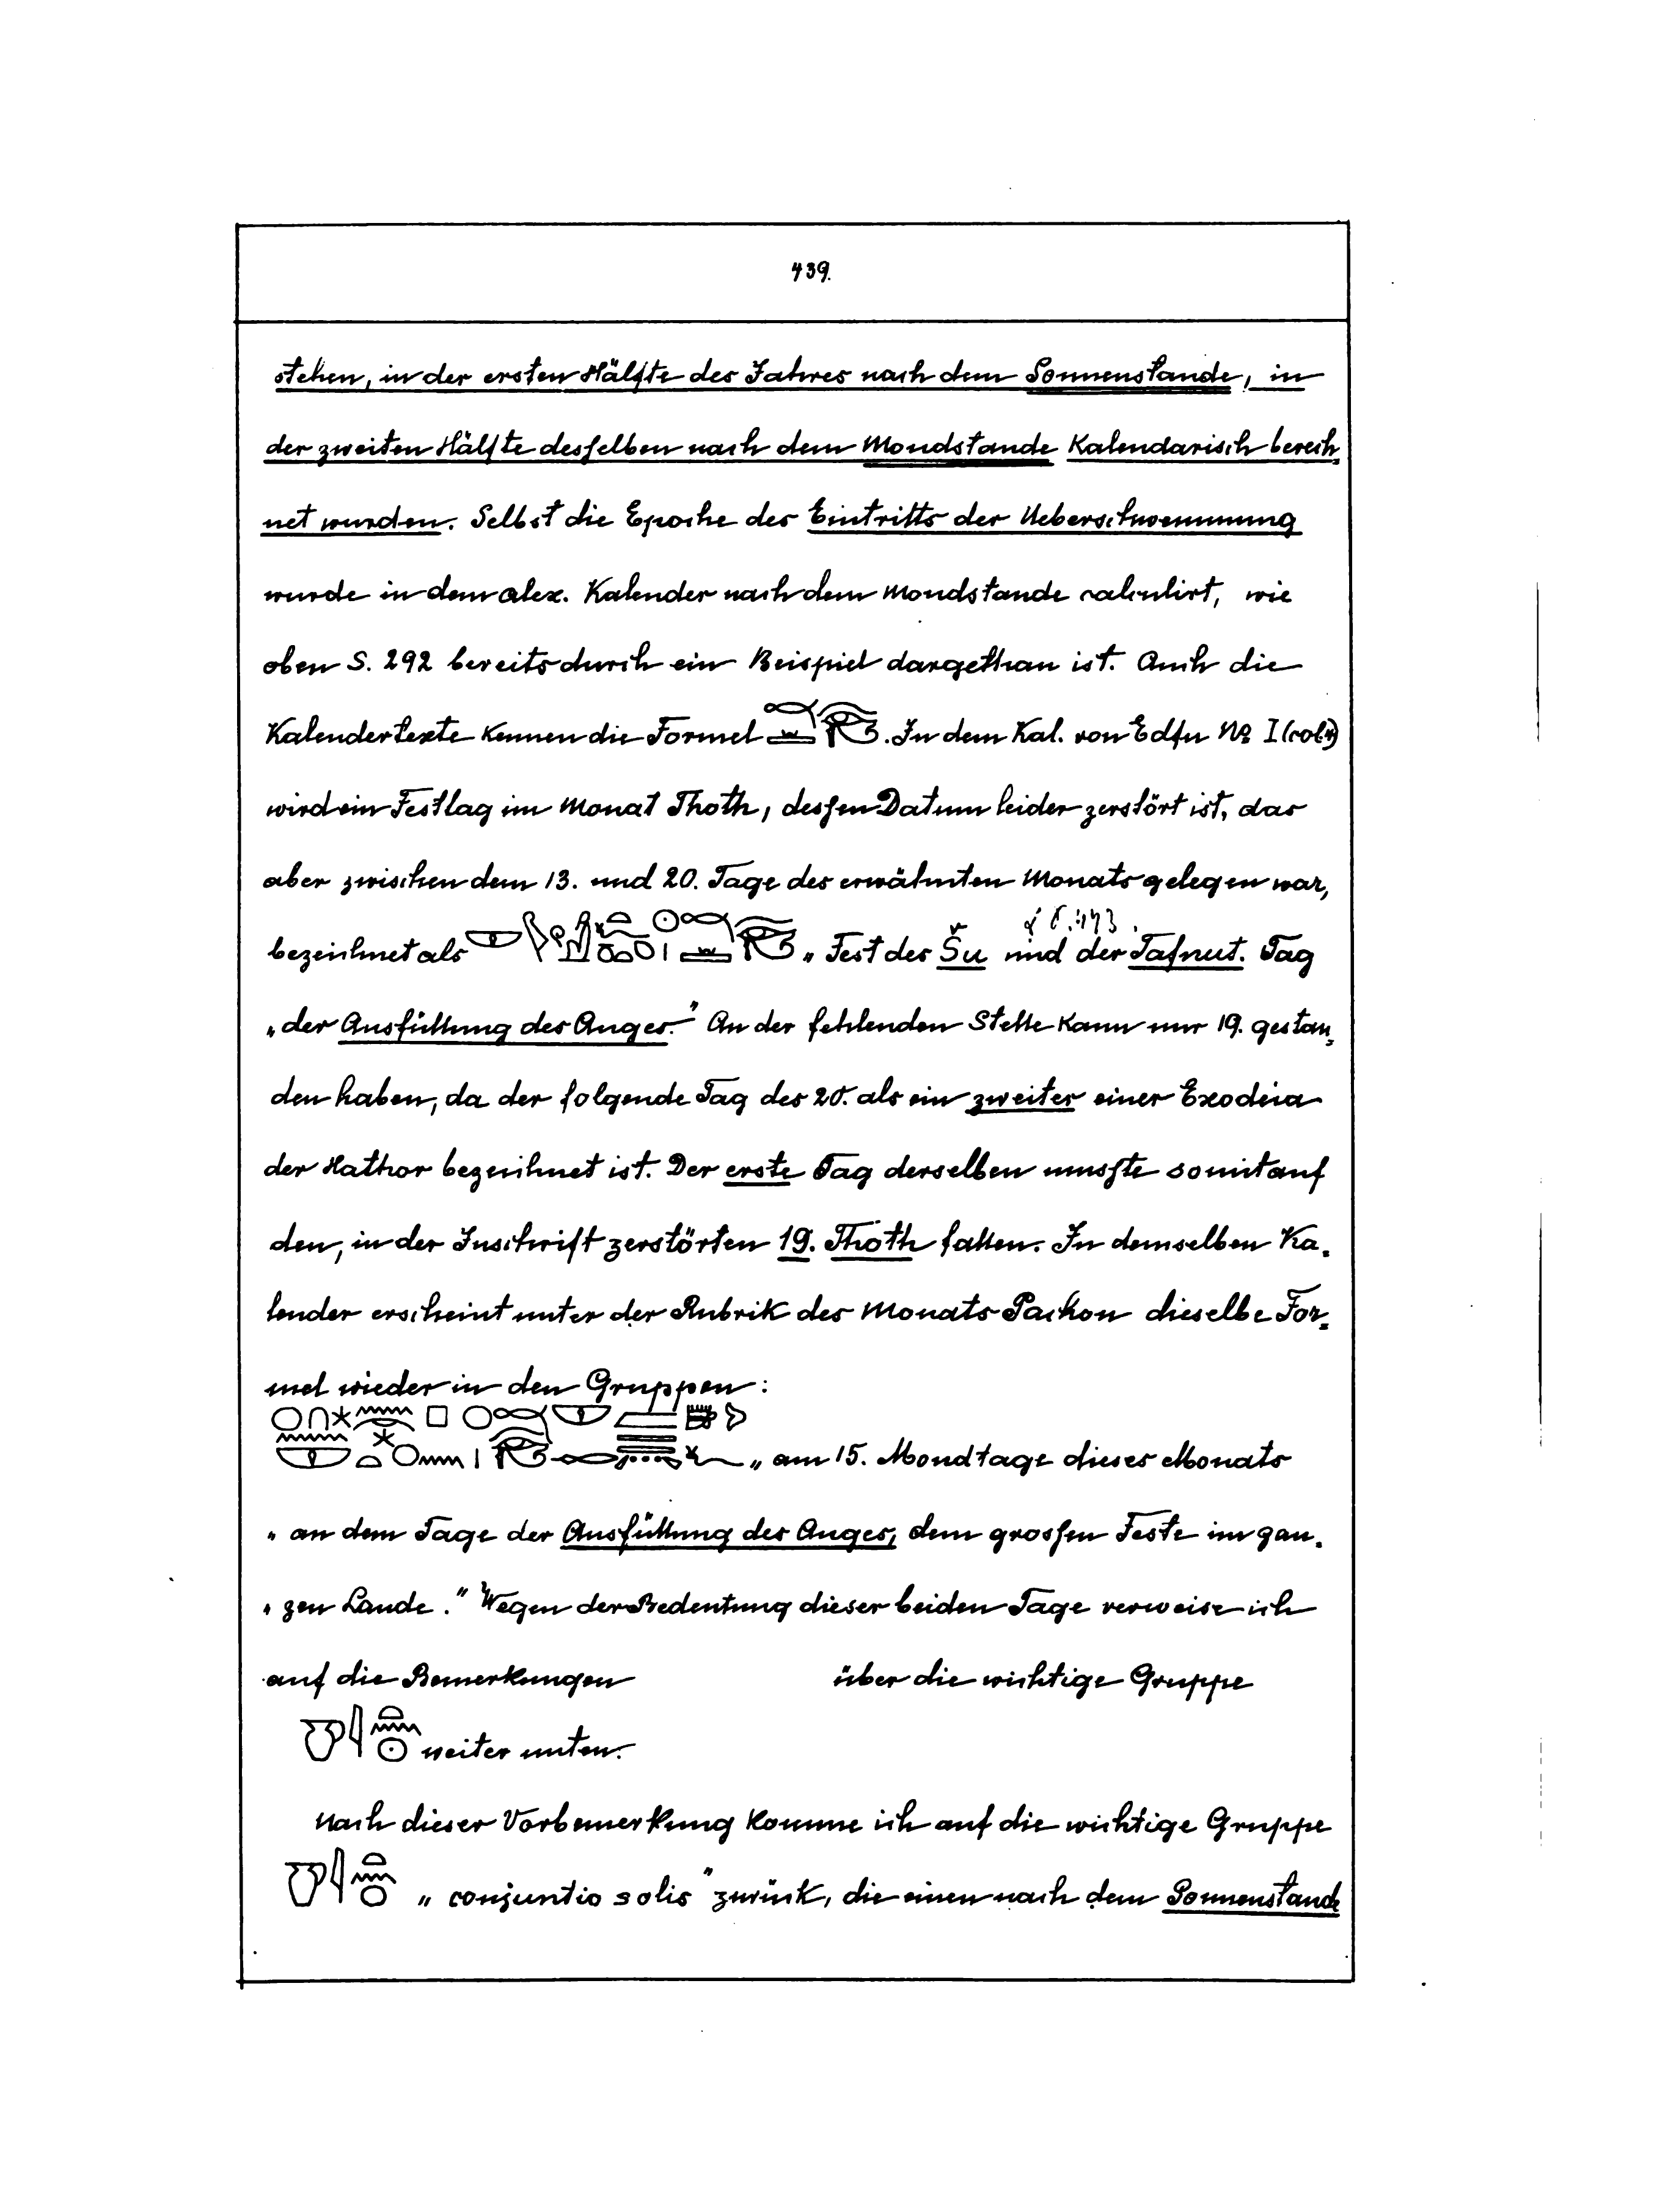 439.
stehen, in der ersten Hälfte des Jahres nach dem Sonnenstande, in
der zweiten Hälfte desselben nach dem Mondstande Kalendarisch berech-
net wurden. Selbst die Epoche des Eintritts der Ueberschwemmung
wurde in dem alex. Kalender nach dem Mondstande calculirt, wie
oben S. 292 bereits durch ein Beispiel dargethan ist. Auch die
Kalendertexte kennen die Formel . In dem Kal. von Edfu No I (col. 4)
wird ein Festtag im Monat Thoth, dessen Datum leider zerstört ist, das
aber zwischen dem 13. und 20. Tage des erwähnten Monats gelegen war,
bezeichnet als „Fest des Šu und der Tafnut. Tag
„der Ausfüllung des Auges.” An der fehlenden Stelle kann nur 19. gestan-
den haben, da der folgende Tag des 20. als ein zweiter einer Exodeia
der Hathor bezeichnet ist. Der erste Tag derselben musste somit auf
den, in der Inschrift zerstörten 19. Thoth fallen. In demselben Ka-
lender erscheint unter der Rubrik des Monats Pachon dieselbe For-
mel wieder in den Gruppen:
„am 15. Mondtage dieses Monats
„an dem Tage der Ausfüllung des Auges, dem grossen Feste im gan-
„zen Lande.” Wegen der Bedeutung dieser beiden Tage verweise ich
auf die Bemerkungen über die wichtige Gruppe
weiter unten.
Nach dieser Vorbemerkung komme ich auf die wichtige Gruppe
„conjunctio solis” zurück, die einen nach dem Sonnenstande